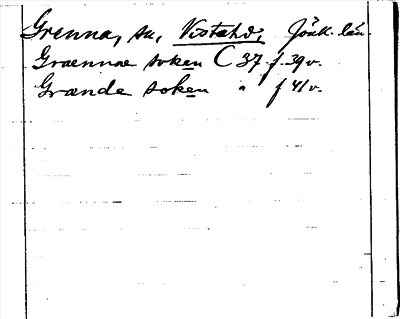 Grenna, sn, Vistahd, Jönk. län.
Graennae soken C 37 f. 39 v.
Grande soken " f 41 v.